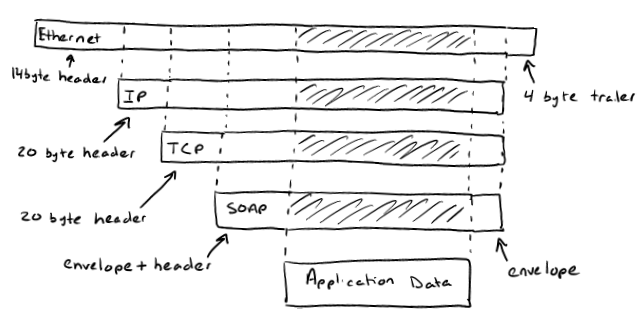 Ethernet
14byte header
4 byte trailer
IP
20 byte header
TCP
20 byte header
SOAP
envelope + header
envelope
Application Data